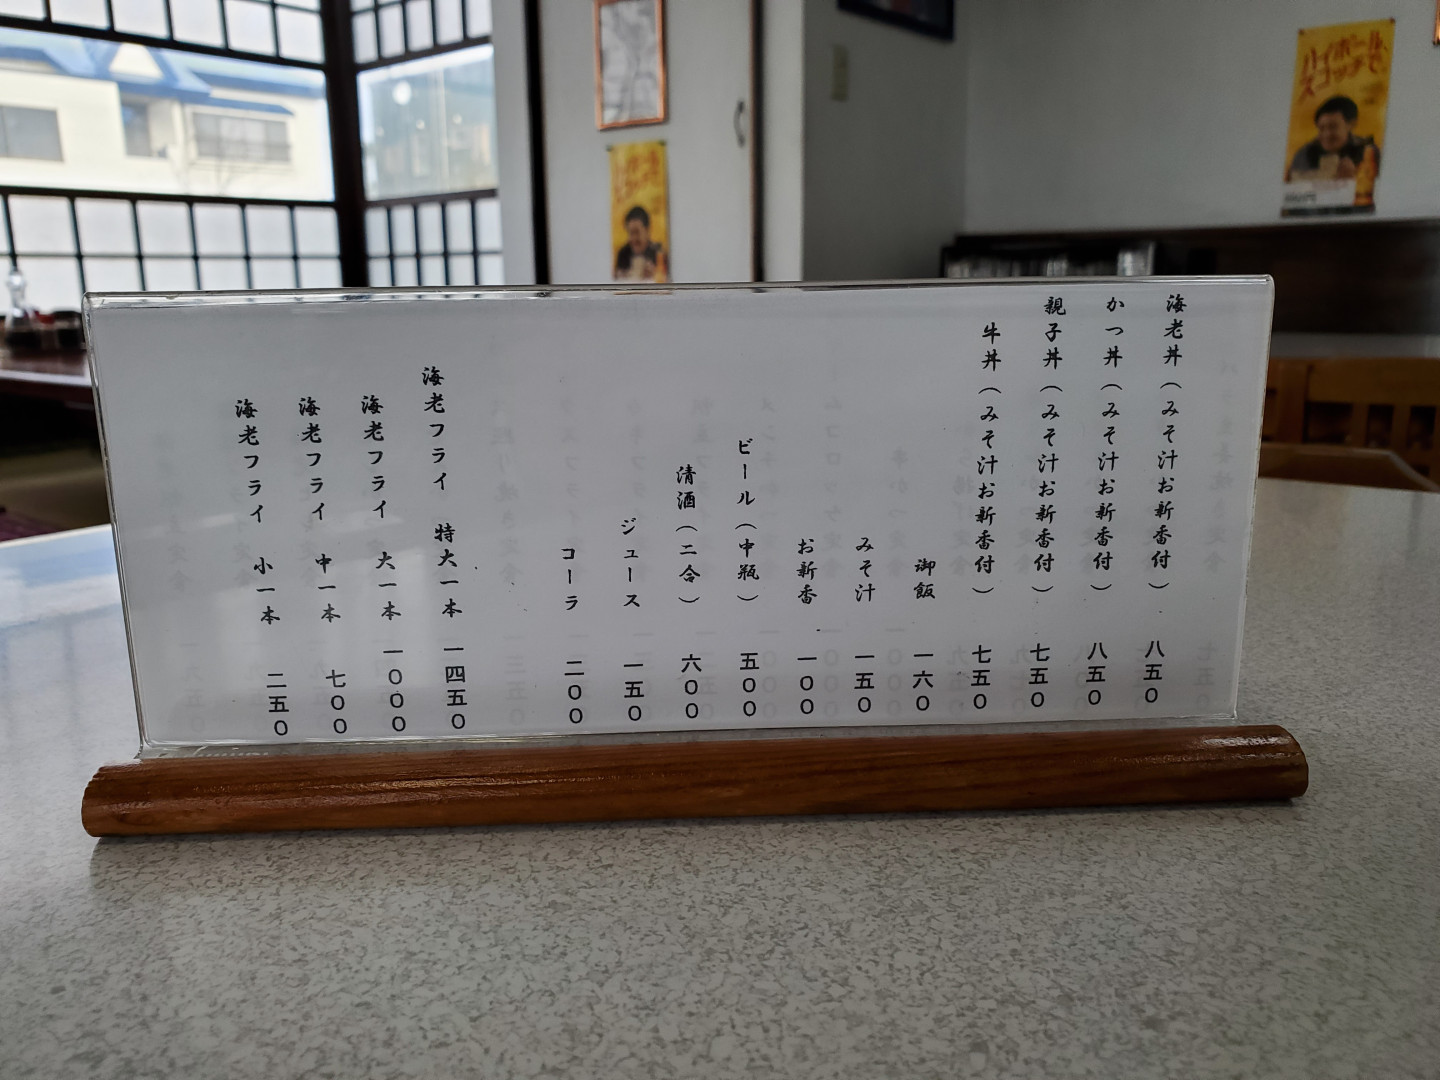 海老丼（みそ汁お新香付） 八五〇
かつ丼（みそ汁お新香付） 八五〇
親子丼（みそ汁お新香付） 七五〇
牛丼（みそ汁お新香付） 七五〇
御飯 一六〇
みそ汁 一五〇
お新香 一〇〇
ビール（中瓶） 五〇〇
清酒（二合） 六〇〇
ジュース 一五〇
コーラ 二〇〇
海老フライ 特大一本 一四五〇
海老フライ 大一本 一〇〇〇
海老フライ 中一本 七〇〇
海老フライ 小一本 二五〇
ハイボールで、
スコッチで